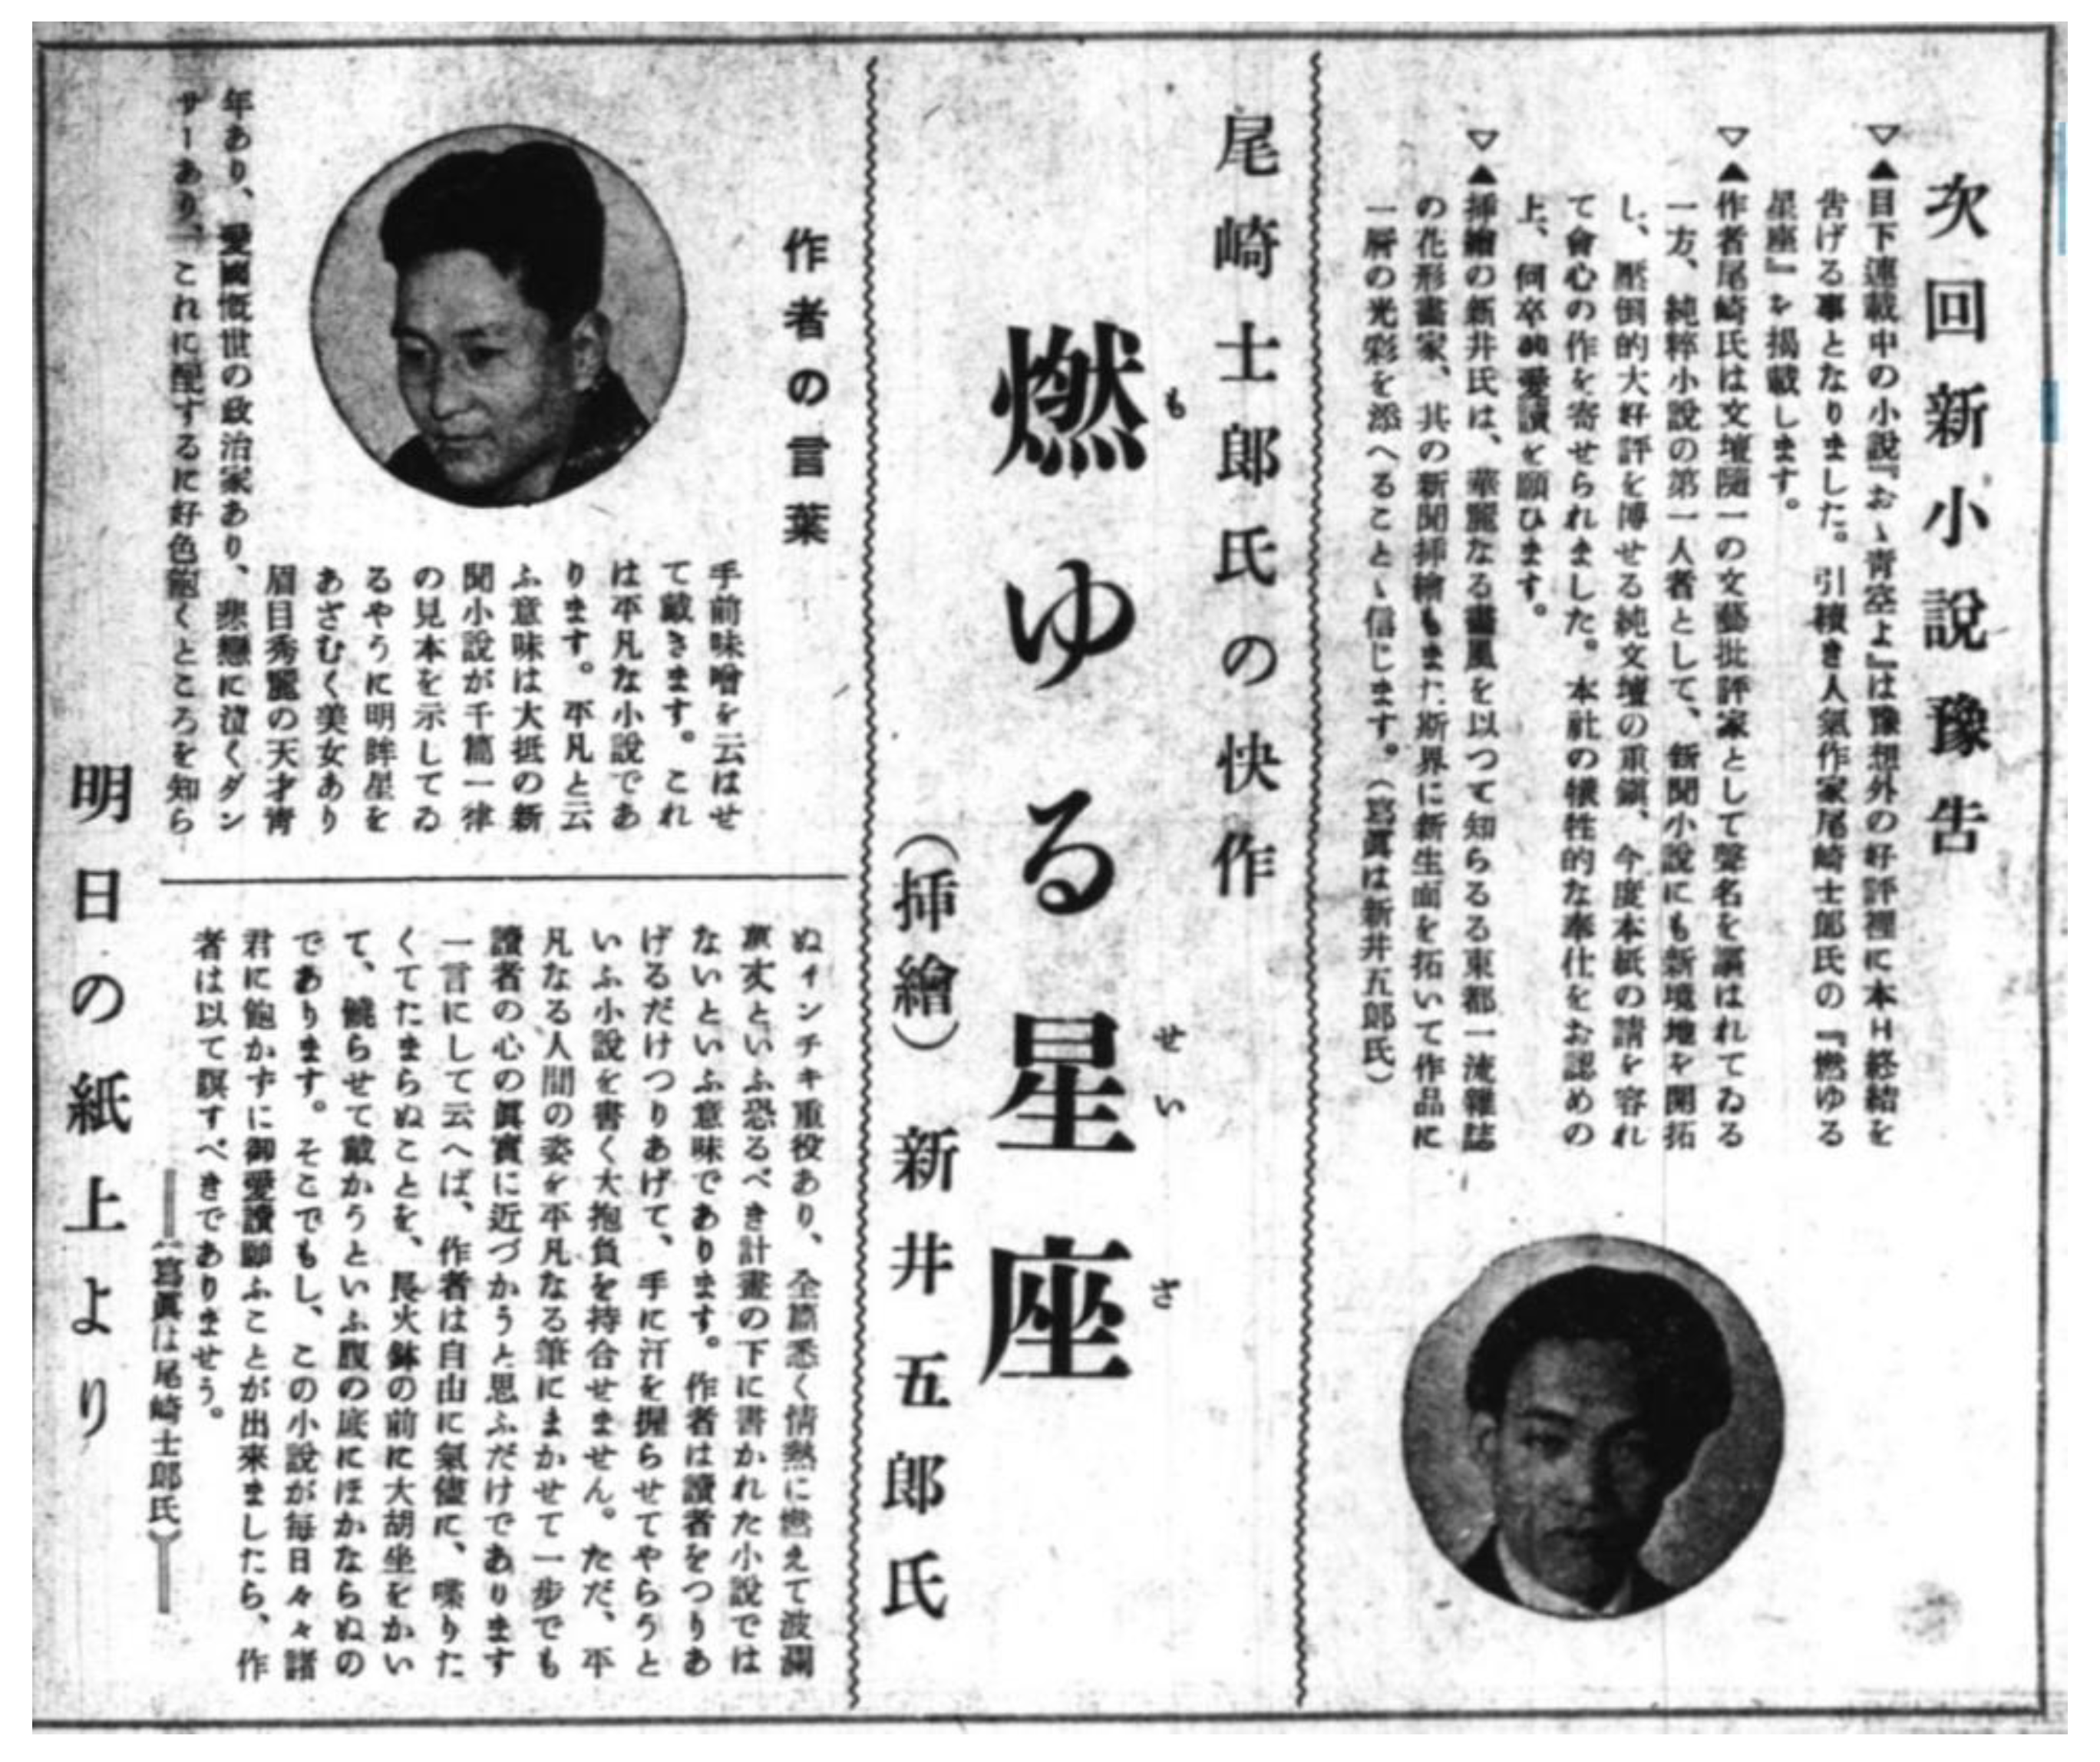 次回新小説豫告
▽▲目下連載中の小説『おゝ青空よ』は豫想外の好評裡に本日終結を
告げる事となりました。引續き人氣作家尾崎士郎氏の『燃ゆる
星座』を掲載します。
▽▲作者尾崎氏は文壇隨一の文藝批評家として聲名を謳はれてゐる
一方、純粹小説の第一人者として、新聞小説にも新境地を開拓
し、壓倒的大好評を博せる純文壇の重鎭、今度本紙の請を容れ
て會心の作を寄せられました。本社の犠牲的な奉仕をお認めの
上、何卒御愛讀を願ひます。
▽▲挿繪の新井氏は、華麗なる畫風を以つて知らるる東都一流雜誌
の花形畫家、其の新聞挿繪もまた斯界に新生面を拓いて作品に
一層の光彩を添へることゝ信じます。（寫眞は新井五郎氏）
尾崎士郎氏の快作
燃ゆる星座
も
せいざ
（挿繪）新井五郎氏
作者の言葉
手前味噌を云はせ
て戴きます。これ
は平凡な小説であ
ります。平凡と云
ふ意味は大抵の新
聞小説が千篇一律
の見本を示してゐ
るやうに明眸星を
あざむく美女あり
眉目秀麗の天才青
年あり、愛國慨世の政治家あり、悲戀に泣くダン
サーあり、これに配するに好色飽くところを知ら
ぬインチキ重役あり、全篇悉く情熱に燃えて波瀾
萬丈といふ恐るべき計畫の下に書かれた小説では
ないといふ意味であります。作者は讀者をつりあ
げるだけつりあげて、手に汗を握らせてやらうと
いふ小説を書く大抱負を持合せません。ただ、平
凡なる人間の姿を平凡なる筆にまかせて一歩でも
讀者の心の眞實に近づかうと思ふだけであります
一言にして云へば、作者は自由に氣儘に、喋りた
くてたまらぬことを、長火鉢の前に大胡坐をかい
て、饒らせて戴かうといふ腹の底にほかならぬの
であります。そこでもし、この小説が毎日々々諸
君に飽かずに御愛讀願ふことが出來ましたら、作
者は以て瞑すべきでありませう。
（寫眞は尾崎士郎氏）
明日の紙上より